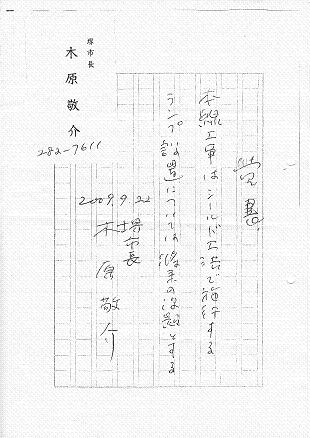 覚書
本線工事はシールド工法で施行する
ランプ設置については将来の課題とする
2009.9.22
堺市長
木原敬介
堺市長
木原敬介
282-7611